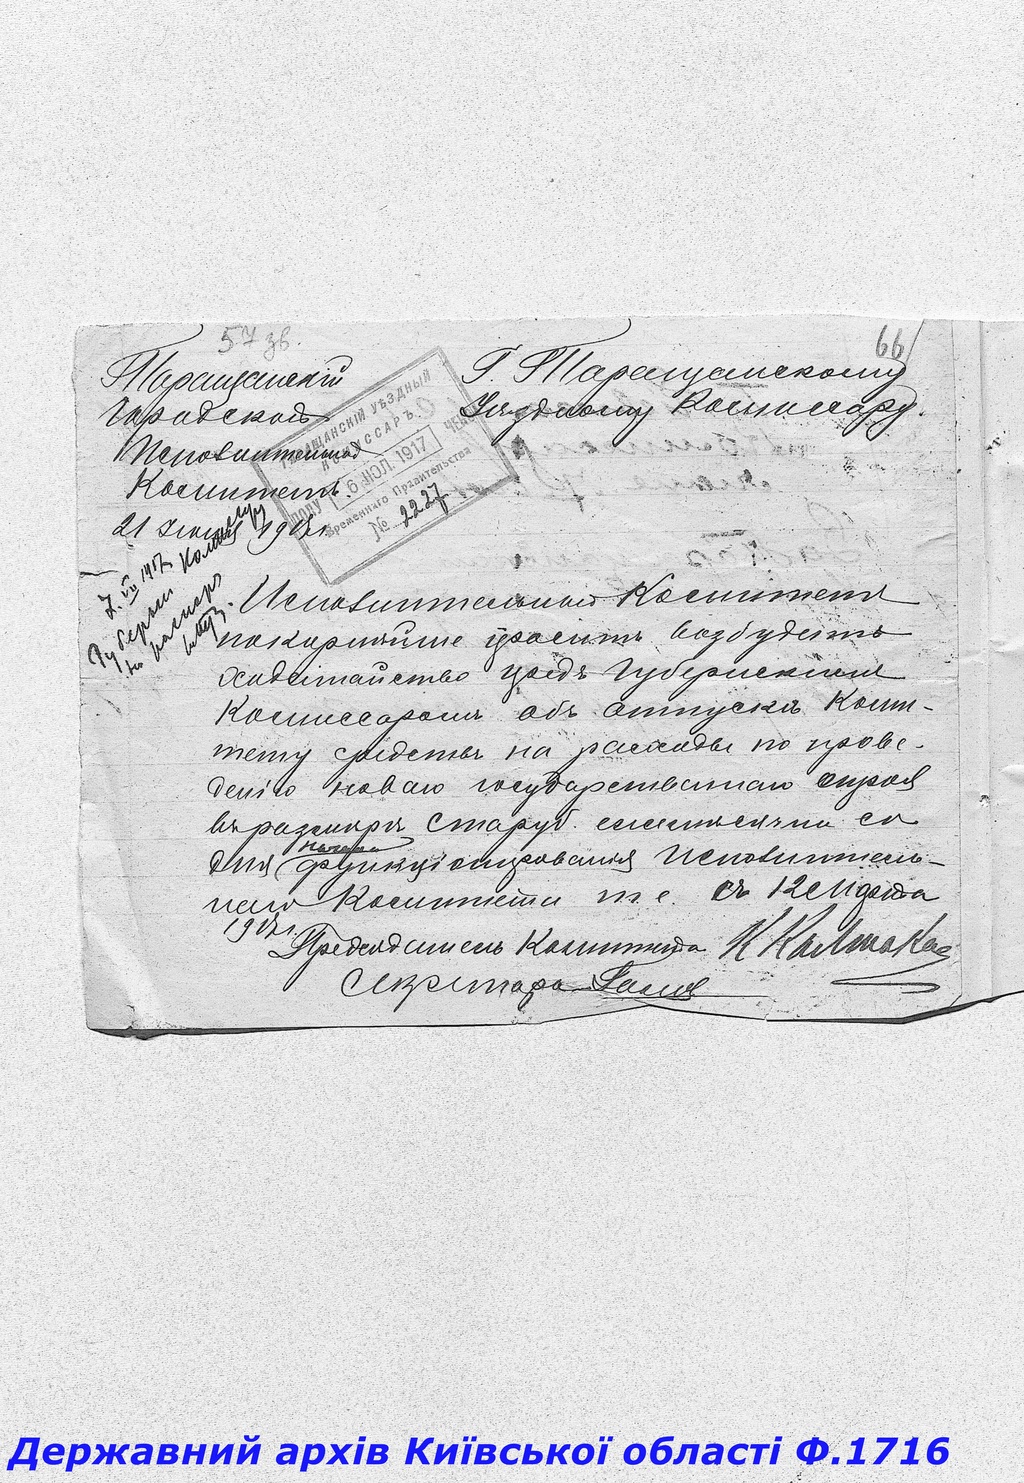 57 зв.
66
Таращанскій
Городской
Исполнительный
Комитетъ.
21 Іюня 1917 г.
Г. Таращанскому
Уѣздному Комиссару.
ТАРАЩАНСКІЙ УѢЗДНЫЙ
КОМИССАРЪ
6 ІЮЛ. 1917
Временнаго Правительства
№ 2227
7. VII 1917
Исполнительный Комитетъ
покорнѣйше проситъ возбудить
ходатайство предъ Губернскимъ
Комиссаромъ объ отпускѣ Коми-
тету средствъ на расходы по прове-
денію новаго государственнаго строя
въ размѣрѣ Ста руб. ежемѣсячно со
дня начала функціонированія Исполнитель-
наго Комитета т.е. съ 12 Марта
1917 г.
Предсѣдатель Комитета
Секретарь
Державний архів Київської області Ф.1716